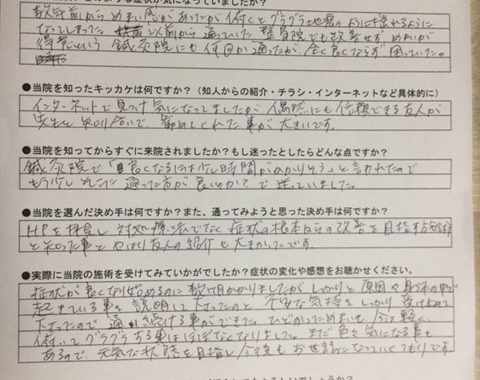 数年前からめまい感があったが何となくグラグラと地震のように揺れるように
なってしまった。以前から通っていた整骨院でも改善せず めまいが
得意という鍼灸院にも何回か通ったが、全く良くならず困っていた。
●当院を知ったキッカケは何ですか？（知人からの紹介・チラシ・インターネットなど具体的に）
インターネットで見つけ気になってましたが 偶然にも信頼できる友人が
先生と知り合いで、勧めてくれた事が大きいです。
●当院を知ってからすぐに来院されましたか？もし迷ったとしたらどんな点ですか？
鍼灸院で「良くなるには少し時間がかかりそう」と言われたので
もう少しそこに通った方が良いのか？で迷っていました。
●当院を選んだ決め手は何ですか？また、通ってみようと思った決め手は何ですか？
HPを拝見し 対処療法でなく症状の根本からの改善を目指す
と知った事と やはり友人の紹介も大きかったです。
●実際に当院の施術を受けてみていかがでしたか？症状の変化や感想をお聞かせください。
症状が良くなり始めるのに数ヶ月かかりましたが しっかりと原因や身体の中で
起きている事を説明して下さったのと 不安な気持ちをしっかり受け止めて
下さったので、通い続ける事ができました。ひどかっためまいも 今は軽く、
何かグラグラする事はほぼなくなりました。まだ色々気になる事も
あるので、元気な状態を目指し今後もお世話になっていくつもりです。